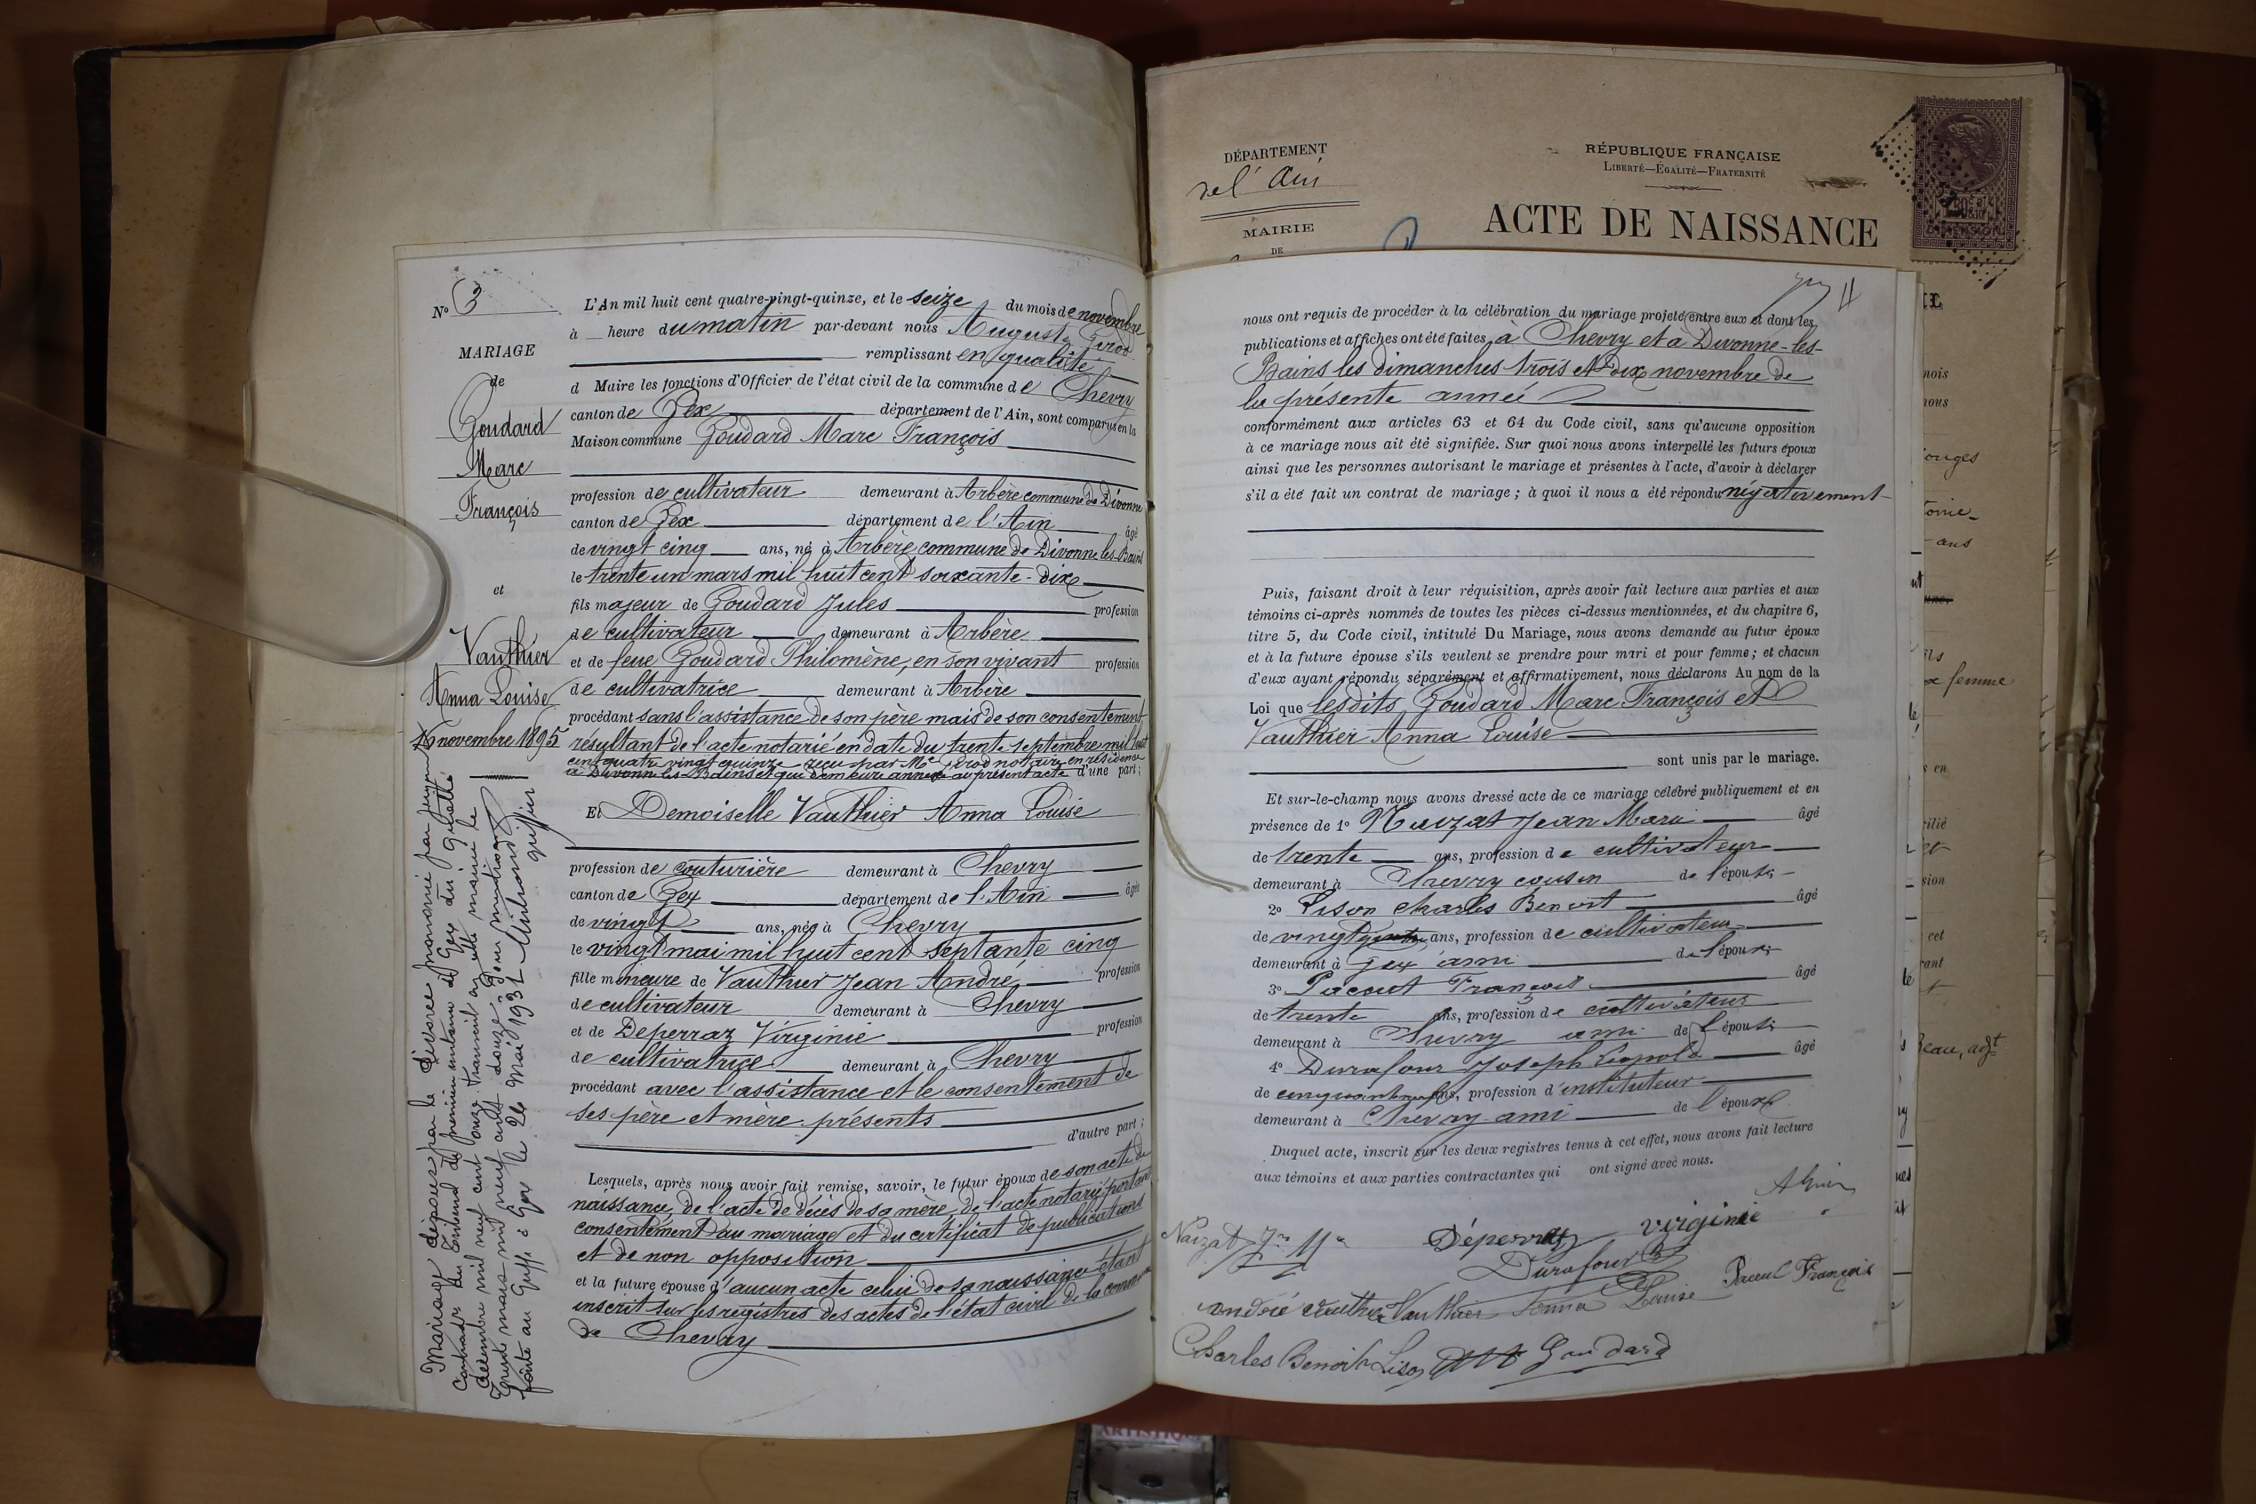 N° 3
MARIAGE
de
Goudard
Marc
François
et
Vauthier
Anna Louise
16 novembre 1895
Mariage dissous par le divorce prononcé par jugement
contradre du Tribunal de première instance de Gex du quatre
décembre mil neuf cent onze transcrit au dite mairie le
mars mil neuf cent douze. Pour mention
faite au Greffe à Gex le 26 Mai 1931
greffier
L'An mil huit cent quatre-vingt-quinze, et le seize du mois de novembre
à heure du matin par-devant nous Auguste Girod
remplissant en qualité
d Maire les fonctions d'Officier de l'état civil de la commune de Chevry
canton de Gex département de l'Ain, sont comparus en la
Maison commune Goudard Marc François
profession de cultivateur demeurant à Arbère commune de Divonne
canton de Gex département de l'Ain âgé
de vingt cinq ans, né à Arbère commune de Divonne les-Bains
le trente un mars mil huit cent soixante-dix
fils majeur de Goudard Jules profession
de cultivateur demeurant à Arbère
et de feue Goudard Philomène, en son vivant profession
de cultivatrice demeurant à Arbère
procédant sans l'assistance de son père mais de son consentement
résultant de l'acte notarié en date du trente septembre mil huit
cent quatre vingt quinze reçu par Me Girod notaire en résidence
à Divonne-les-Bains et qui demeure annexé au présent acte d'une part;
Et Demoiselle Vauthier Anna Louise
profession de couturière demeurant à Chevry
canton de Gex département de l'Ain âgée
de vingt ans, née à Chevry
le vingt mai mil huit cent septante cinq
fille mineure de Vauthier Jean André profession
de cultivateur demeurant à Chevry
et de Deperraz Virginie profession
de cultivatrice demeurant à Chevry
procédant avec l'assistance et le consentement de
ses père et mère présents
d'autre part;
Lesquels, après nous avoir fait remise, savoir, le futur époux de son acte de
naissance, de l'acte de décès de sa mère, de l'acte notarié portant
consentement au mariage et du certificat de publications
et de non opposition
et la future épouse d'aucun acte celui de sa naissance étant
inscrit sur les registres des actes de l'état civil de la commune
de Chevry
DÉPARTEMENT
de l'Ain
MAIRIE
DE
RÉPUBLIQUE FRANÇAISE
LIBERTÉ—EGALITÉ—FRATERNITÉ
ACTE DE NAISSANCE
4
nous ont requis de procéder à la célébration du mariage projeté entre eux et dont les
publications et affiches ont été faites, à Chevry et à Divonne-les-
Bains les dimanches trois et dix novembre de
la présente année
conformément aux articles 63 et 64 du Code civil, sans qu'aucune opposition
à ce mariage nous ait été signifiée. Sur quoi nous avons interpellé les futurs époux
ainsi que les personnes autorisant le mariage et présentes à l'acte, d'avoir à déclarer
s'il a été fait un contrat de mariage; à quoi il nous a été répondu négativement
Puis, faisant droit à leur réquisition, après avoir fait lecture aux parties et aux
témoins ci-après nommés de toutes les pièces ci-dessus mentionnées, et du chapitre 6,
titre 5, du Code civil, intitulé Du Mariage, nous avons demandé au futur époux
et à la future épouse s'ils veulent se prendre pour mari et pour femme; et chacun
d'eux ayant répondu séparément et affirmativement, nous déclarons Au nom de la
Loi que lesdits Goudard Marc François et
Vauthier Anna Louise
sont unis par le mariage.
Et sur-le-champ nous avons dressé acte de ce mariage célébré publiquement et en
présence de 1° Naizat Jean Marie âgé
de trente ans, profession de cultivateur
demeurant à Chevry cousin de l'épouse
2° Lison Charles Benoit âgé
de vingt ans, profession de cultivateur
demeurant à Gex ami de l'épouse
3° Pacout François âgé
de trente ans, profession de cultivateur
demeurant à Chevry ami de l'épouse
4° Durafour Joseph Léopold âgé
de ans, profession d'instituteur
demeurant à Chevry ami de l'époux
Duquel acte, inscrit sur les deux registres tenus à cet effet, nous avons fait lecture
aux témoins et aux parties contractantes qui ont signé avec nous.
A Girod
Naizat Jn Mie Déperraz virginie
Durafour
andré Vauthier Vauthier Anna Louise Pacout François
Charles Benoit Lison Goudard